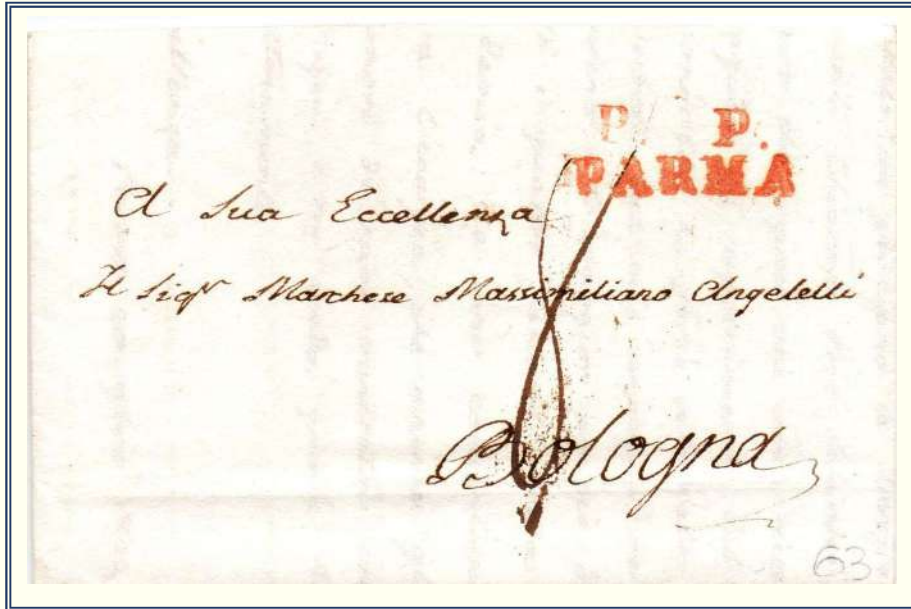 P. P.
PARMA
A Sua Eccellenza
Il Sigr Marchese Massimiliano Angelelli
8
Bologna
63